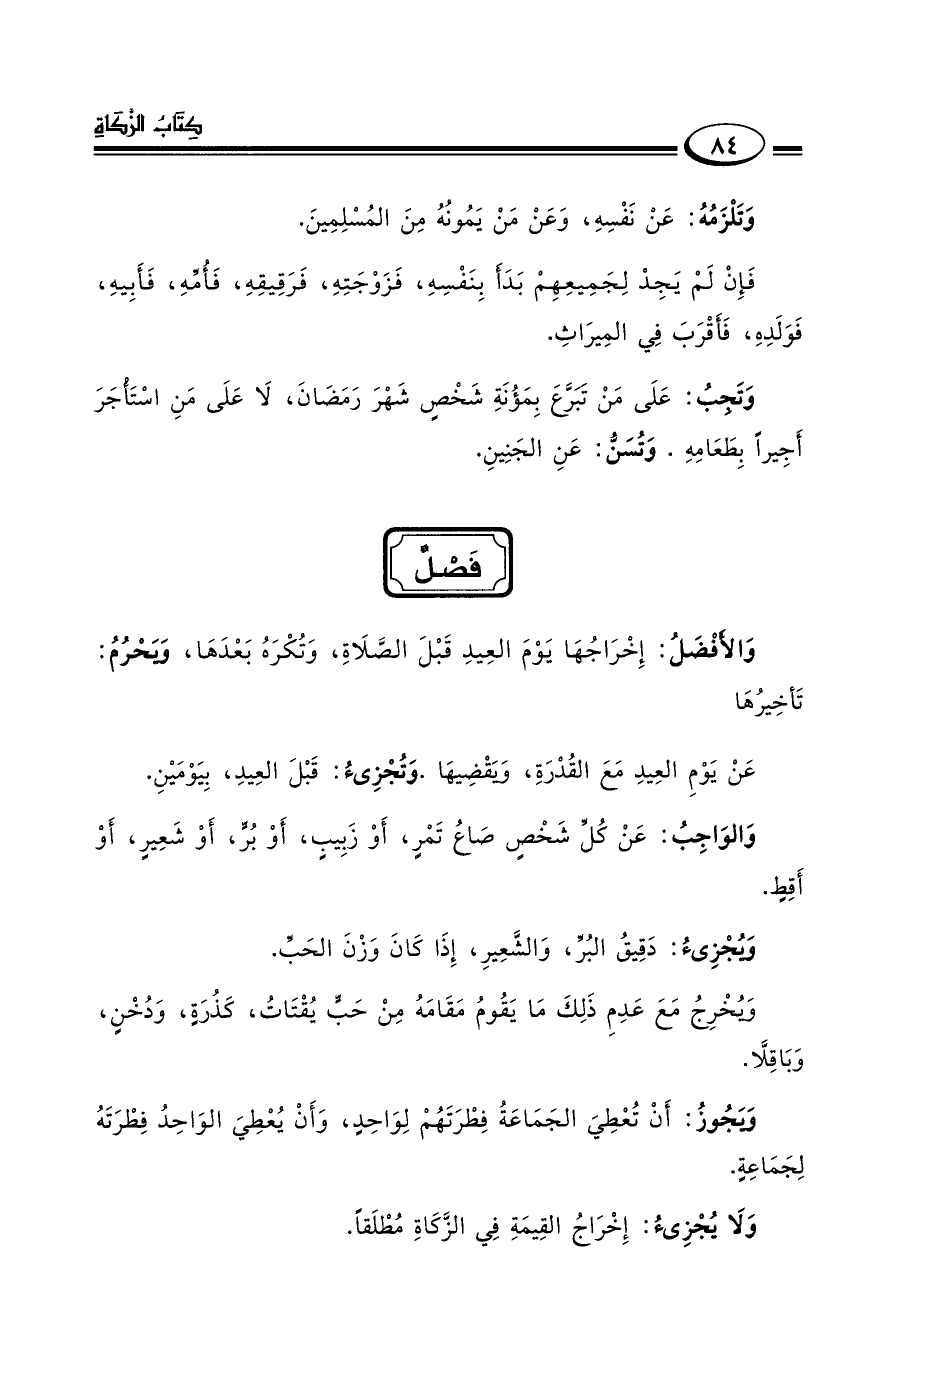 كِتَابُ الزَّكَاةِ
٨٤
وَتَلْزَمُهُ: عَنْ نَفْسِهِ، وَعَنْ مَنْ يَمُونُهُ مِنَ المُسْلِمِينَ.
فَإِنْ لَمْ يَجِدْ لِجَمِيعِهِمْ بَدَأَ بِنَفْسِهِ، فَزَوْجَتِهِ، فَرَقِيقِهِ، فَأُمِّهِ، فَأَبِيهِ،
فَوَلَدِهِ، فَأَقْرَبَ فِي المِيرَاثِ.
وَتَجِبُ: عَلَى مَنْ تَبَرَّعَ بِمَؤُنَةِ شَخْصٍ شَهْرَ رَمَضَانَ، لَا عَلَى مَنِ اسْتَأْجَرَ
أَجِيراً بِطَعَامِهِ . وَتُسَنُّ: عَنِ الجَنِينِ.
فَصْلٌ
وَالأَفْضَلُ: إِخْرَاجُهَا يَوْمَ العِيدِ قَبْلَ الصَّلَاةِ، وَتُكْرَهُ بَعْدَهَا، وَيَحْرُمُ:
تَأخِيرُهَا
عَنْ يَوْمِ العِيدِ مَعَ القُدْرَةِ، وَيَقْضِيهَا .وَتُجْزِىءُ: قَبْلَ العِيدِ، بِيَوْمَيْنِ.
وَالوَاجِبُ: عَنْ كُلِّ شَخْصٍ صَاعُ تَمْرٍ، أَوْ زَبِيبٍ، أَوْ بُرٍّ، أَوْ شَعِيرٍ، أَوْ
أَقِطٍ.
وَيُجْزِىءُ: دَقِيقُ البُرِّ، وَالشَّعِيرِ، إِذَا كَانَ وَزْنَ الحَبِّ.
وَيُخْرِجُ مَعَ عَدِمِ ذَلِكَ مَا يَقُومُ مَقَامَهُ مِنْ حَبٍّ يُقْتَاتُ، كَذُرَةٍ، وَدُخْنٍ،
وَبَاقِلَّا.
وَيَجُوزُ: أَنْ تُعْطِيَ الجَمَاعَةُ فِطْرَتَهُمْ لِوَاحِدٍ، وَأَنْ يُعْطِيَ الوَاحِدُ فِطْرَتَهُ
لِجَمَاعِةٍ.
وَلَا يُجْزِىءُ: إِخْرَاجُ القِيمَةِ فِي الزَّكَاةِ مُطْلَقاً.